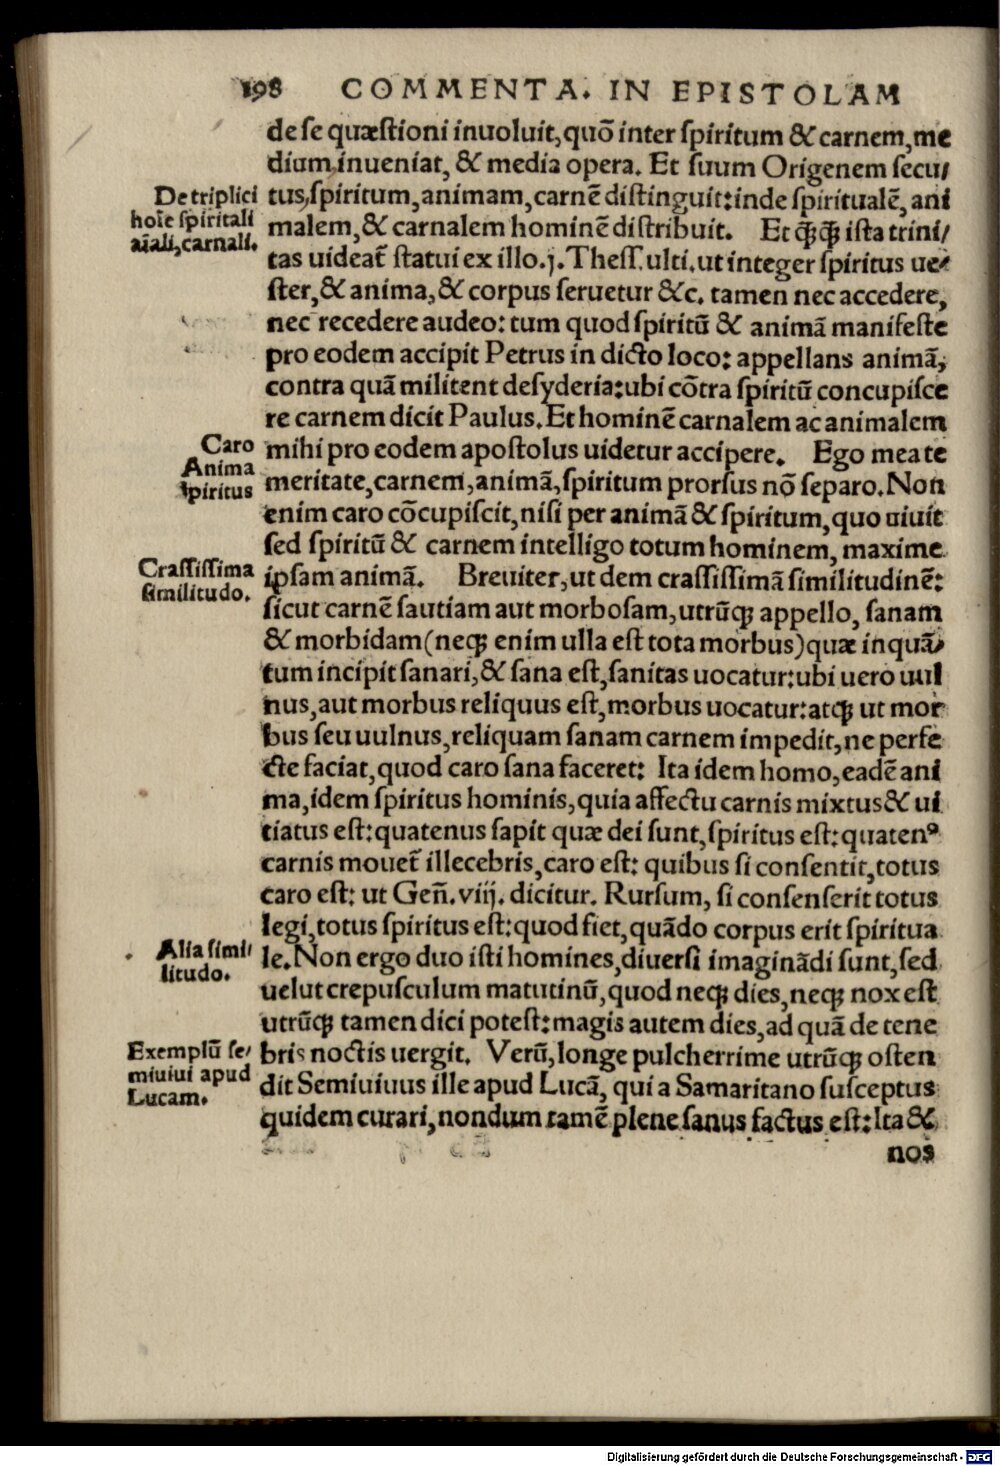 198 COMMENTA. IN EPISTOLAM
de ſe quæſtioni inuoluit, quō inter ſpiritum & carnem, me
dium inueniat, & media opera. Et ſuum Origenem ſecu/
tus, ſpiritum, animam, carnē diſtinguit: inde ſpiritualē, ani
malem, & carnalem hominē diſtribuit. Et q̄q̄ iſta trini/
tas uideat̃ ſtatui ex illo. j. Theſſ. ulti. ut integer ſpiritus ue/
ſter, & anima, & corpus ſeruetur &c. tamen nec accedere,
nec recedere audeo: tum quod ſpiritū & animā manifeſte
pro eodem accipit Petrus in dicto loco: appellans animā,
contra quā militent deſyderia: ubi cōtra ſpiritū concupiſce
re carnem dicit Paulus. Et hominē carnalem ac animalem
mihi pro eodem apoſtolus uidetur accipere. Ego mea te
meritate, carnem, animā, ſpiritum prorſus nō ſeparo. Non
enim caro cōcupiſcit, niſi per animā & ſpiritum, quo uiuit
ſed ſpiritū & carnem intelligo totum hominem, maxime
ipſam animā. Breuiter, ut dem craſſiſſimā ſimilitudinē:
ſicut carnē ſautiam aut morboſam, utrūq; appello, ſanam
& morbidam (neq; enim ulla eſt tota morbus) quæ inquā/
tum incipit ſanari, & ſana eſt, ſanitas uocatur: ubi uero uul
nus, aut morbus reliquus eſt, morbus uocatur: atq; ut mor
bus ſeu uulnus, reliquam ſanam carnem impedit, ne perfe
cte faciat, quod caro ſana faceret: Ita idem homo, eadē ani
ma, idem ſpiritus hominis, quia affectu carnis mixtus & ui
tiatus eſt: quatenus ſapit quæ dei ſunt, ſpiritus eſt: quatenꝰ
carnis mouet̃ illecebris, caro eſt: quibus ſi conſentit, totus
caro eſt: ut Geñ. viij. dicitur. Rurſum, ſi conſenſerit totus
legi, totus ſpiritus eſt: quod fiet, quādo corpus erit ſpiritua
le. Non ergo duo iſti homines, diuerſi imaginādi ſunt, ſed
uelut crepuſculum matutinū, quod neq; dies, neq; nox eſt
utrūq; tamen dici poteſt: magis autem dies, ad quā de tene
bris noctis uergit. Verū, longe pulcherrime utrūq; oſten
dit Semiuiuus ille apud Lucā, qui a Samaritano ſuſceptus
quidem curari, nondum tamē plene ſanus factus eſt: Ita &
nos
De triplici
hoīe ſpiritali
aīali, carnali.
Caro
Anima
ſpiritus
Craſſiſſima
ſimilitudo.
Alia ſimi/
litudo.
Exemplū ſe/
miuiui apud
Lucam.
Digitalisierung gefördert durch die Deutsche Forschungsgemeinschaft - DFG